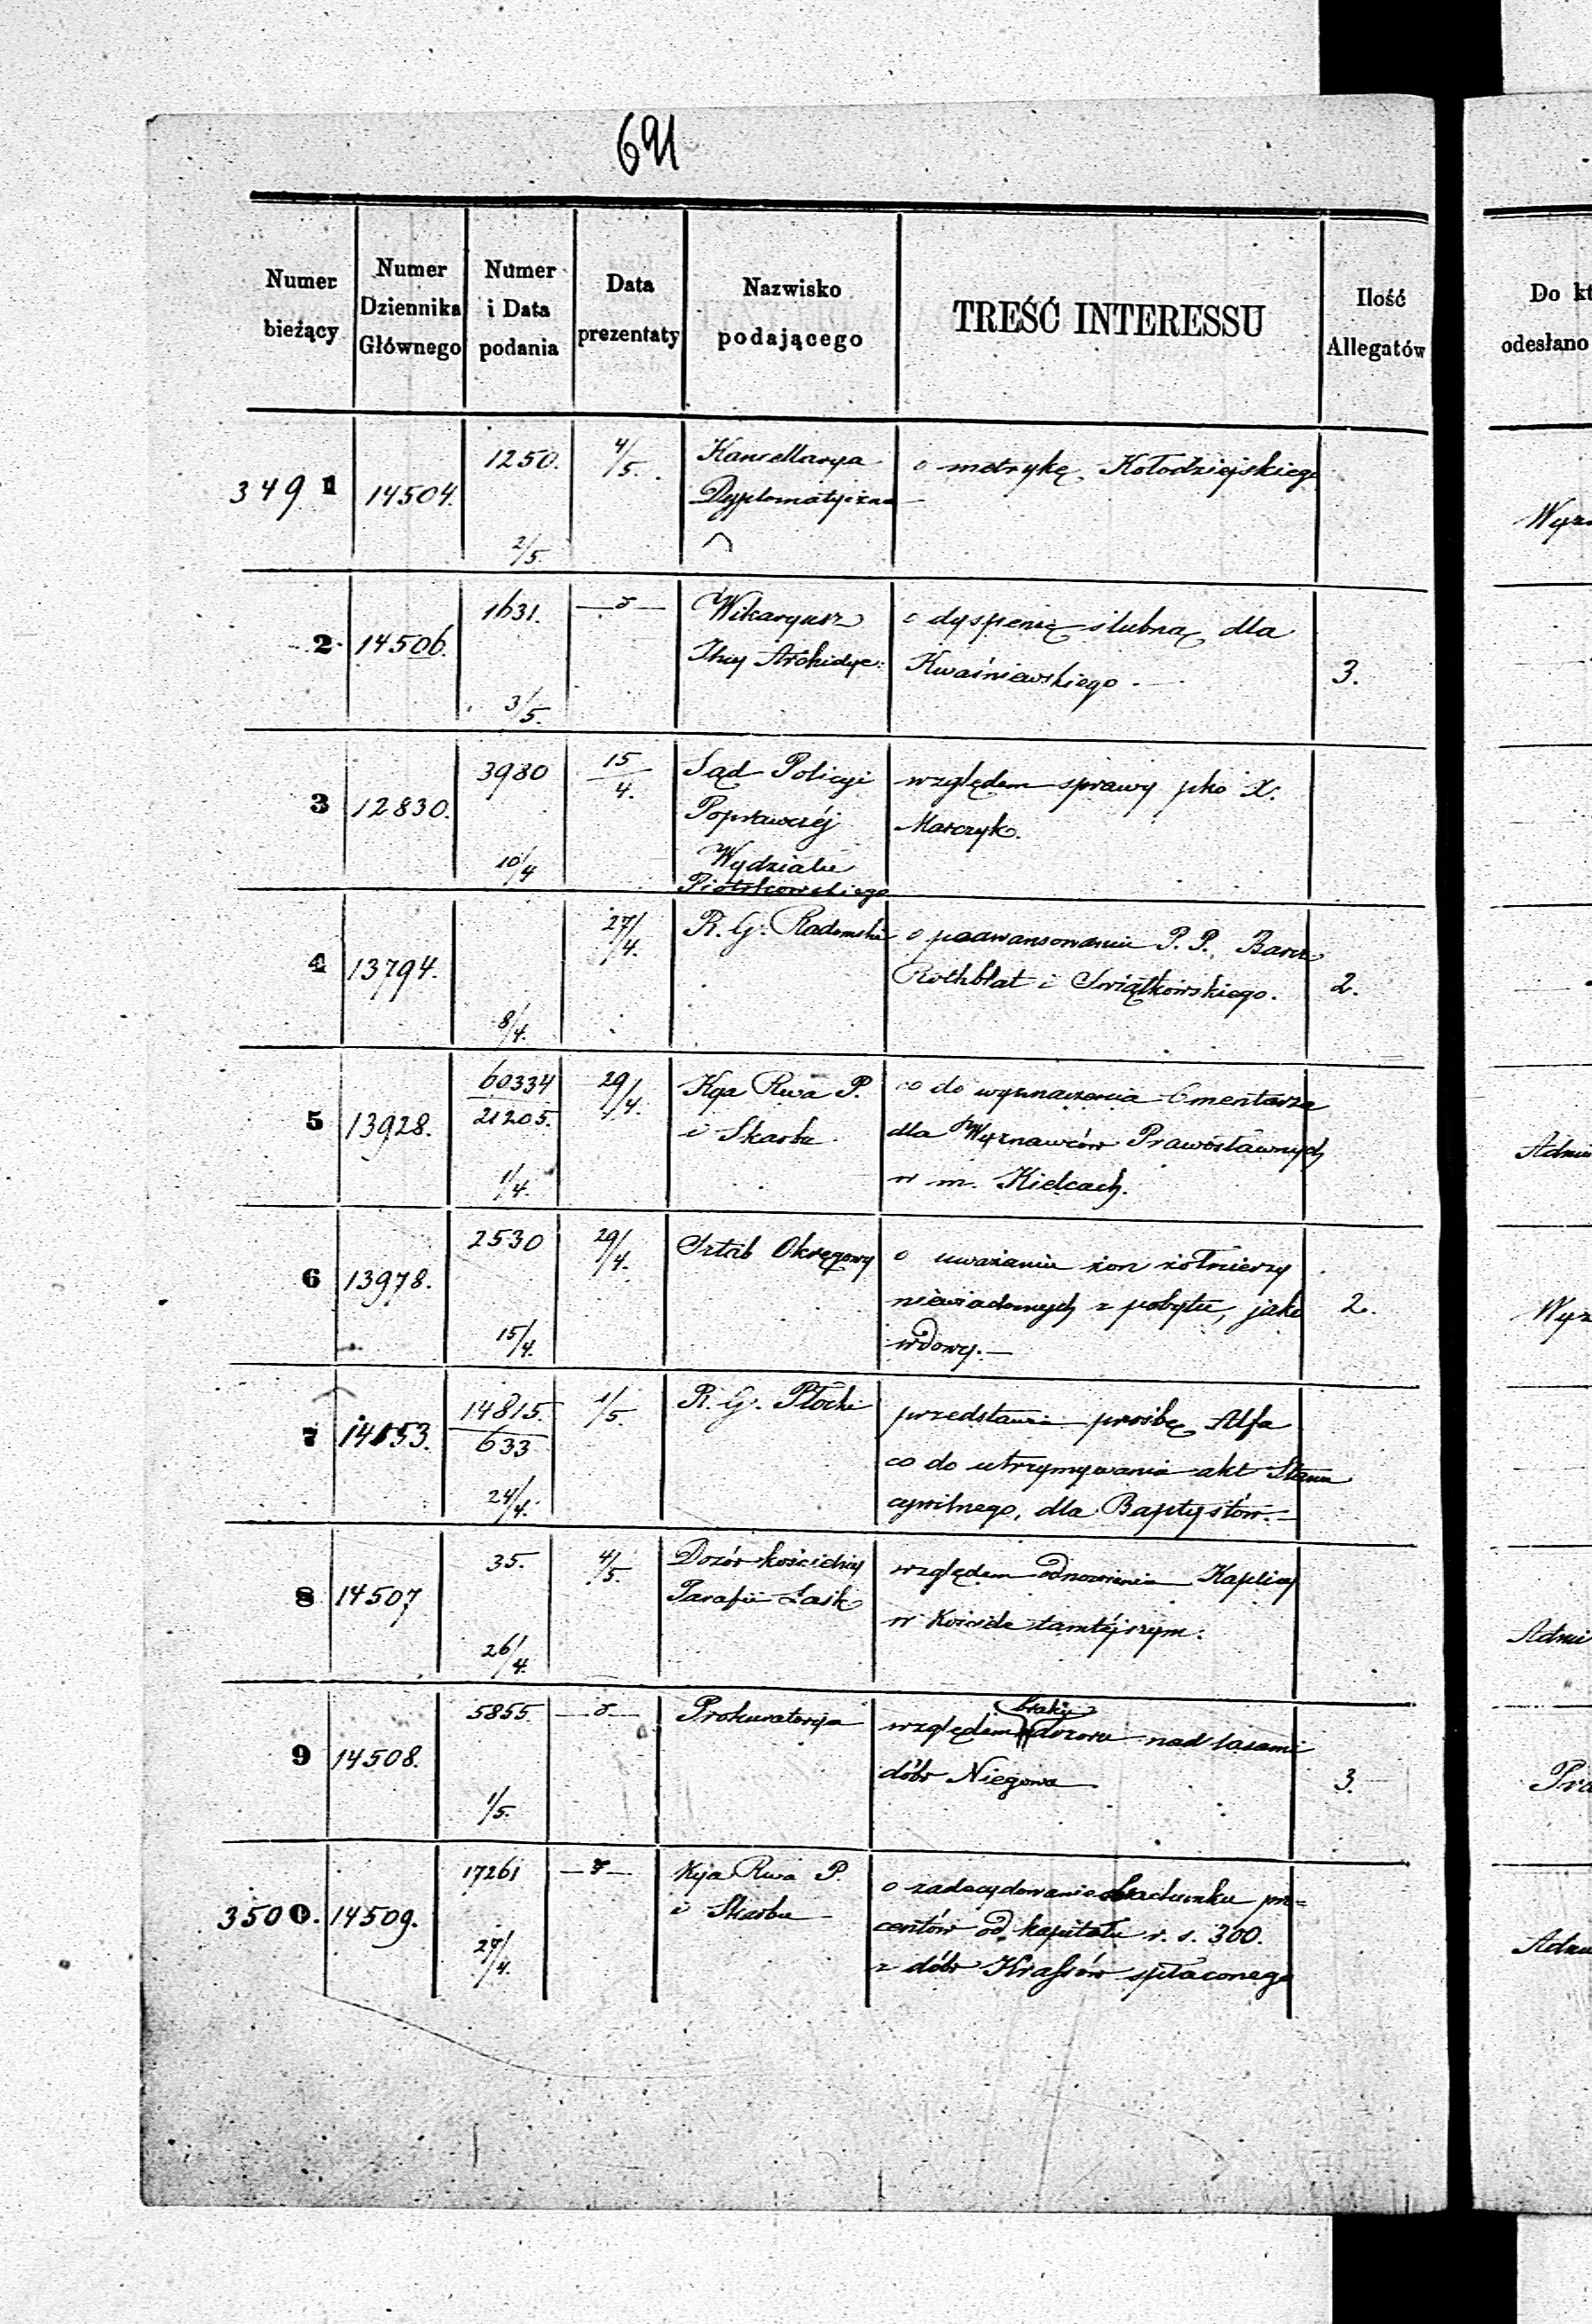 691
Numer bieżący
Numer Dziennika Głównego
Numer i Data podania
Data prezentaty
Nazwisko podającego
TREŚĆ INTERESSU
Ilość Allegatów
Do kt
odesłano
3491 14504. 1250. 2/5. 4/5.
Kancellarya
Dyplomatyczna
o metrykę Kołodziejskiego
2 14506. 1631. 3/5.
Wikaryusz
Archidyec:
o dyspenię ślubną dla
Kwaśniewskiego.
3.
3 12830. 3980 10/4 15/4.
Sąd Policyi
Poprawczéj
Wydziału
Piotrkowskiego
względem sprawy pko X.
Marczyk.
4 13794. 8/4. 27/4.
R. G. Radomski
o paawansowanie P. P.
Rothblat i Swiątkowskiego.
2.
5 13928. 60334 21205. 1/4. 29/4.
Kya Rwa P.
i Skarbu
co do wyznaczenia Cmentarza
dla Wyznawców Prawosławnych
w m. Kielcach.
6 13978. 2530 15/4. 29/4.
Sztab Okręgowy
o uważanie żon żołnierzy
niewiadomych z pobytu, jako
wdowy.—
2.
7 14153. 14815. 633 24/4. 1/5.
R. G. Płocki
przedstawia prośbę Alfa
co do utrzymywania akt Stanu
cywilnego, dla Baptystów.—
8 14507 35. 26/4. 4/5.
Dozór kościelny
Parafii Łask
względem odnowienia Kaplicy
w Kościele tamtéjszym.
9 14508. 5855. 1/5.
Prokuratorya
braku
względem dozoru nad lasami
dóbr Niegowa
3.
3500. 14509. 17261 27/4.
Kya Rwa P.
i Skarbu
o zadecydowanie obrachunku pro=
centów od kapitału r. s. 300.
z dóbr Krassów spłaconego